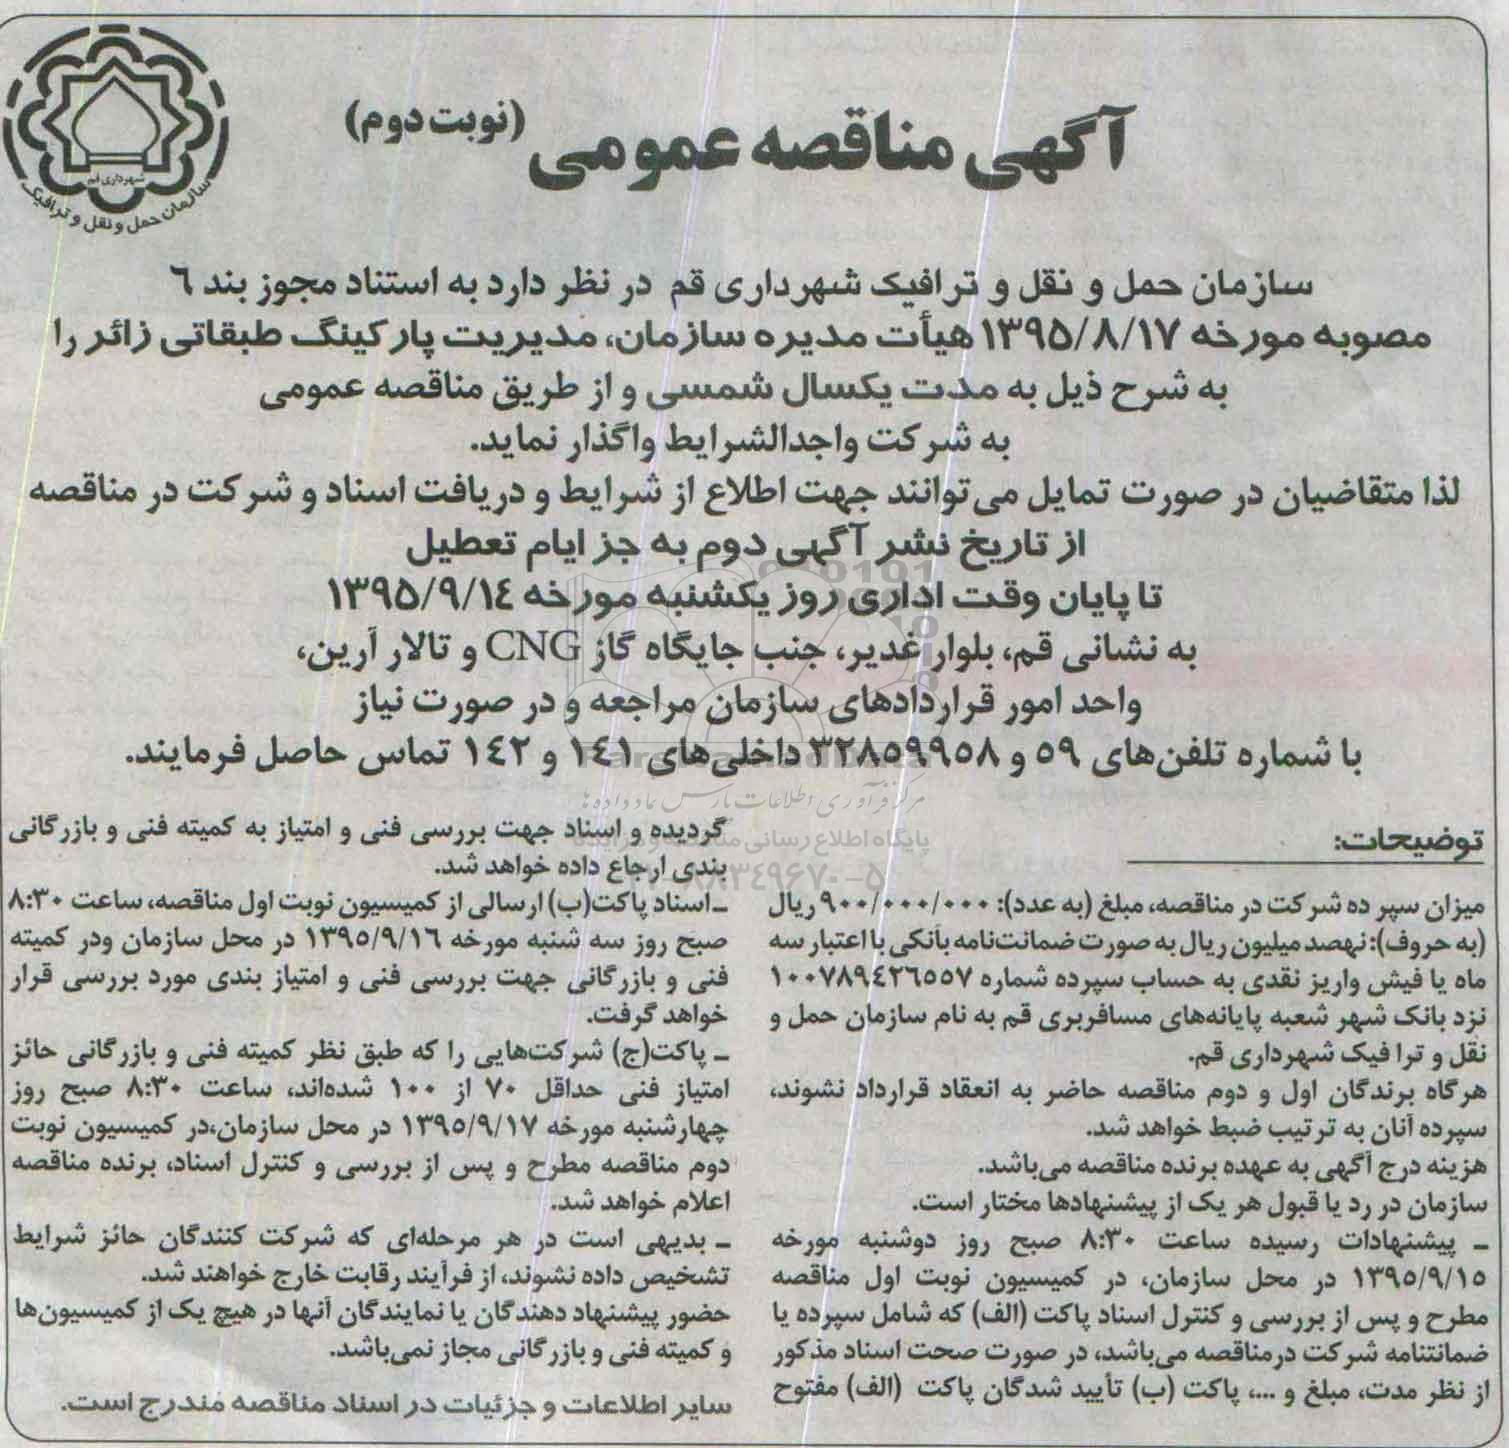 آگهی مناقصه عمومی (نوبت دوم)
شهرداری قم
سازمان حمل و نقل و ترافیک
سازمان حمل و نقل و ترافیک شهرداری قم در نظر دارد به استناد مجوز بند ٦
مصوبه مورخه ۱۳۹۵/۸/۱۷ هیأت مدیره سازمان، مدیریت پارکینگ طبقاتی زائر را
به شرح ذیل به مدت یکسال شمسی و از طریق مناقصه عمومی
به شرکت واجدالشرایط واگذار نماید.
لذا متقاضیان در صورت تمایل می‌توانند جهت اطلاع از شرایط و دریافت اسناد و شرکت در مناقصه
از تاریخ نشر آگهی دوم به جز ایام تعطیل
تا پایان وقت اداری روز یکشنبه مورخه ۱۳۹۵/۹/۱٤
به نشانی قم، بلوار غدیر، جنب جایگاه گاز CNG و تالار آرین،
واحد امور قراردادهای سازمان مراجعه و در صورت نیاز
با شماره تلفن‌های ۵۹ و ۳۲۸۵۹۹۵۸ داخلی‌های ۱٤۱ و ۱٤۲ تماس حاصل فرمایند.
مرکز فرآوری اطلاعات پارس نماد داده ها
پایگاه اطلاع رسانی مناقصه و مزایده
۸۸۳۴۹۶۷۰-۵
توضیحات:
میزان سپر ده شرکت در مناقصه، مبلغ (به عدد): ۹۰۰/۰۰۰/۰۰۰ ریال
(به حروف): نهصد میلیون ریال به صورت ضمانت‌نامه بانکی با اعتبار سه
ماه یا فیش واریز نقدی به حساب سپرده شماره ۱۰۰۷۸۹٤۲٦۵۵۷
نزد بانک شهر شعبه پایانه‌های مسافربری قم به نام سازمان حمل و
نقل و ترا فیک شهرداری قم.
هرگاه برندگان اول و دوم مناقصه حاضر به انعقاد قرارداد نشوند،
سپرده آنان به ترتیب ضبط خواهد شد.
هزینه درج آگهی به عهده برنده مناقصه می‌باشد.
سازمان در رد یا قبول هر یک از پیشنهادها مختار است.
ـ پیشنهادات رسیده ساعت ۸:۳۰ صبح روز دوشنبه مورخه
۱۳۹۵/۹/۱۵ در محل سازمان، در کمیسیون نوبت اول مناقصه
مطرح و پس از بررسی و کنترل اسناد پاکت (الف) که شامل سپرده یا
ضمانتنامه شرکت درمناقصه می‌باشد، در صورت صحت اسناد مذکور
از نظر مدت، مبلغ و ....، پاکت (ب) تأیید شدگان پاکت (الف) مفتوح
گردیده و اسناد جهت بررسی فنی و امتیاز به کمیته فنی و بازرگانی
بندی ارجاع داده خواهد شد.
ـ اسناد پاکت(ب) ارسالی از کمیسیون نوبت اول مناقصه، ساعت ۸:۳۰
صبح روز سه شنبه مورخه ۱۳۹۵/۹/۱٦ در محل سازمان ودر کمیته
فنی و بازرگانی جهت بررسی فنی و امتیاز بندی مورد بررسی قرار
خواهد گرفت.
ـ پاکت(ج) شرکت‌هایی را که طبق نظر کمیته فنی و بازرگانی حائز
امتیاز فنی حداقل ۷۰ از ۱۰۰ شده‌اند، ساعت ۸:۳۰ صبح روز
چهارشنبه مورخه ۱۳۹۵/۹/۱۷ در محل سازمان،در کمیسیون نوبت
دوم مناقصه مطرح و پس از بررسی و کنترل اسناد، برنده مناقصه
اعلام خواهد شد.
ـ بدیهی است در هر مرحله‌ای که شرکت کنندگان حائز شرایط
تشخیص داده نشوند، از فرآیند رقابت خارج خواهند شد.
حضور پیشنهاد دهندگان یا نمایندگان آنها در هیچ یک از کمیسیون‌ها
و کمیته فنی و بازرگانی مجاز نمی‌باشد.
سایر اطلاعات و جزئیات در اسناد مناقصه مندرج است.